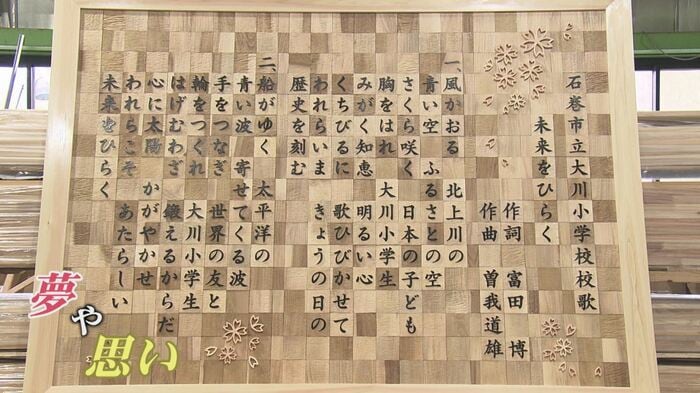 石巻市立大川小学校校歌
未来をひらく
作詞 富田 博
作曲 曽我道雄
一、風かおる 北上川の
青い空 ふるさとの空
さくら咲く 日本の子ども
胸をはれ 大川小学生
みがく知恵 明るい心
くちびるに 歌ひびかせて
われらいま きょうの日の
歴史を刻む
二、船がゆく 太平洋の
青い波 寄せてくる波
手をつなぎ 世界の友と
輪をつくれ 大川小学生
はげむわざ 鍛えるからだ
心に太陽 かがやかせ
われらこそ あたらしい
未来をひらく
夢や思い